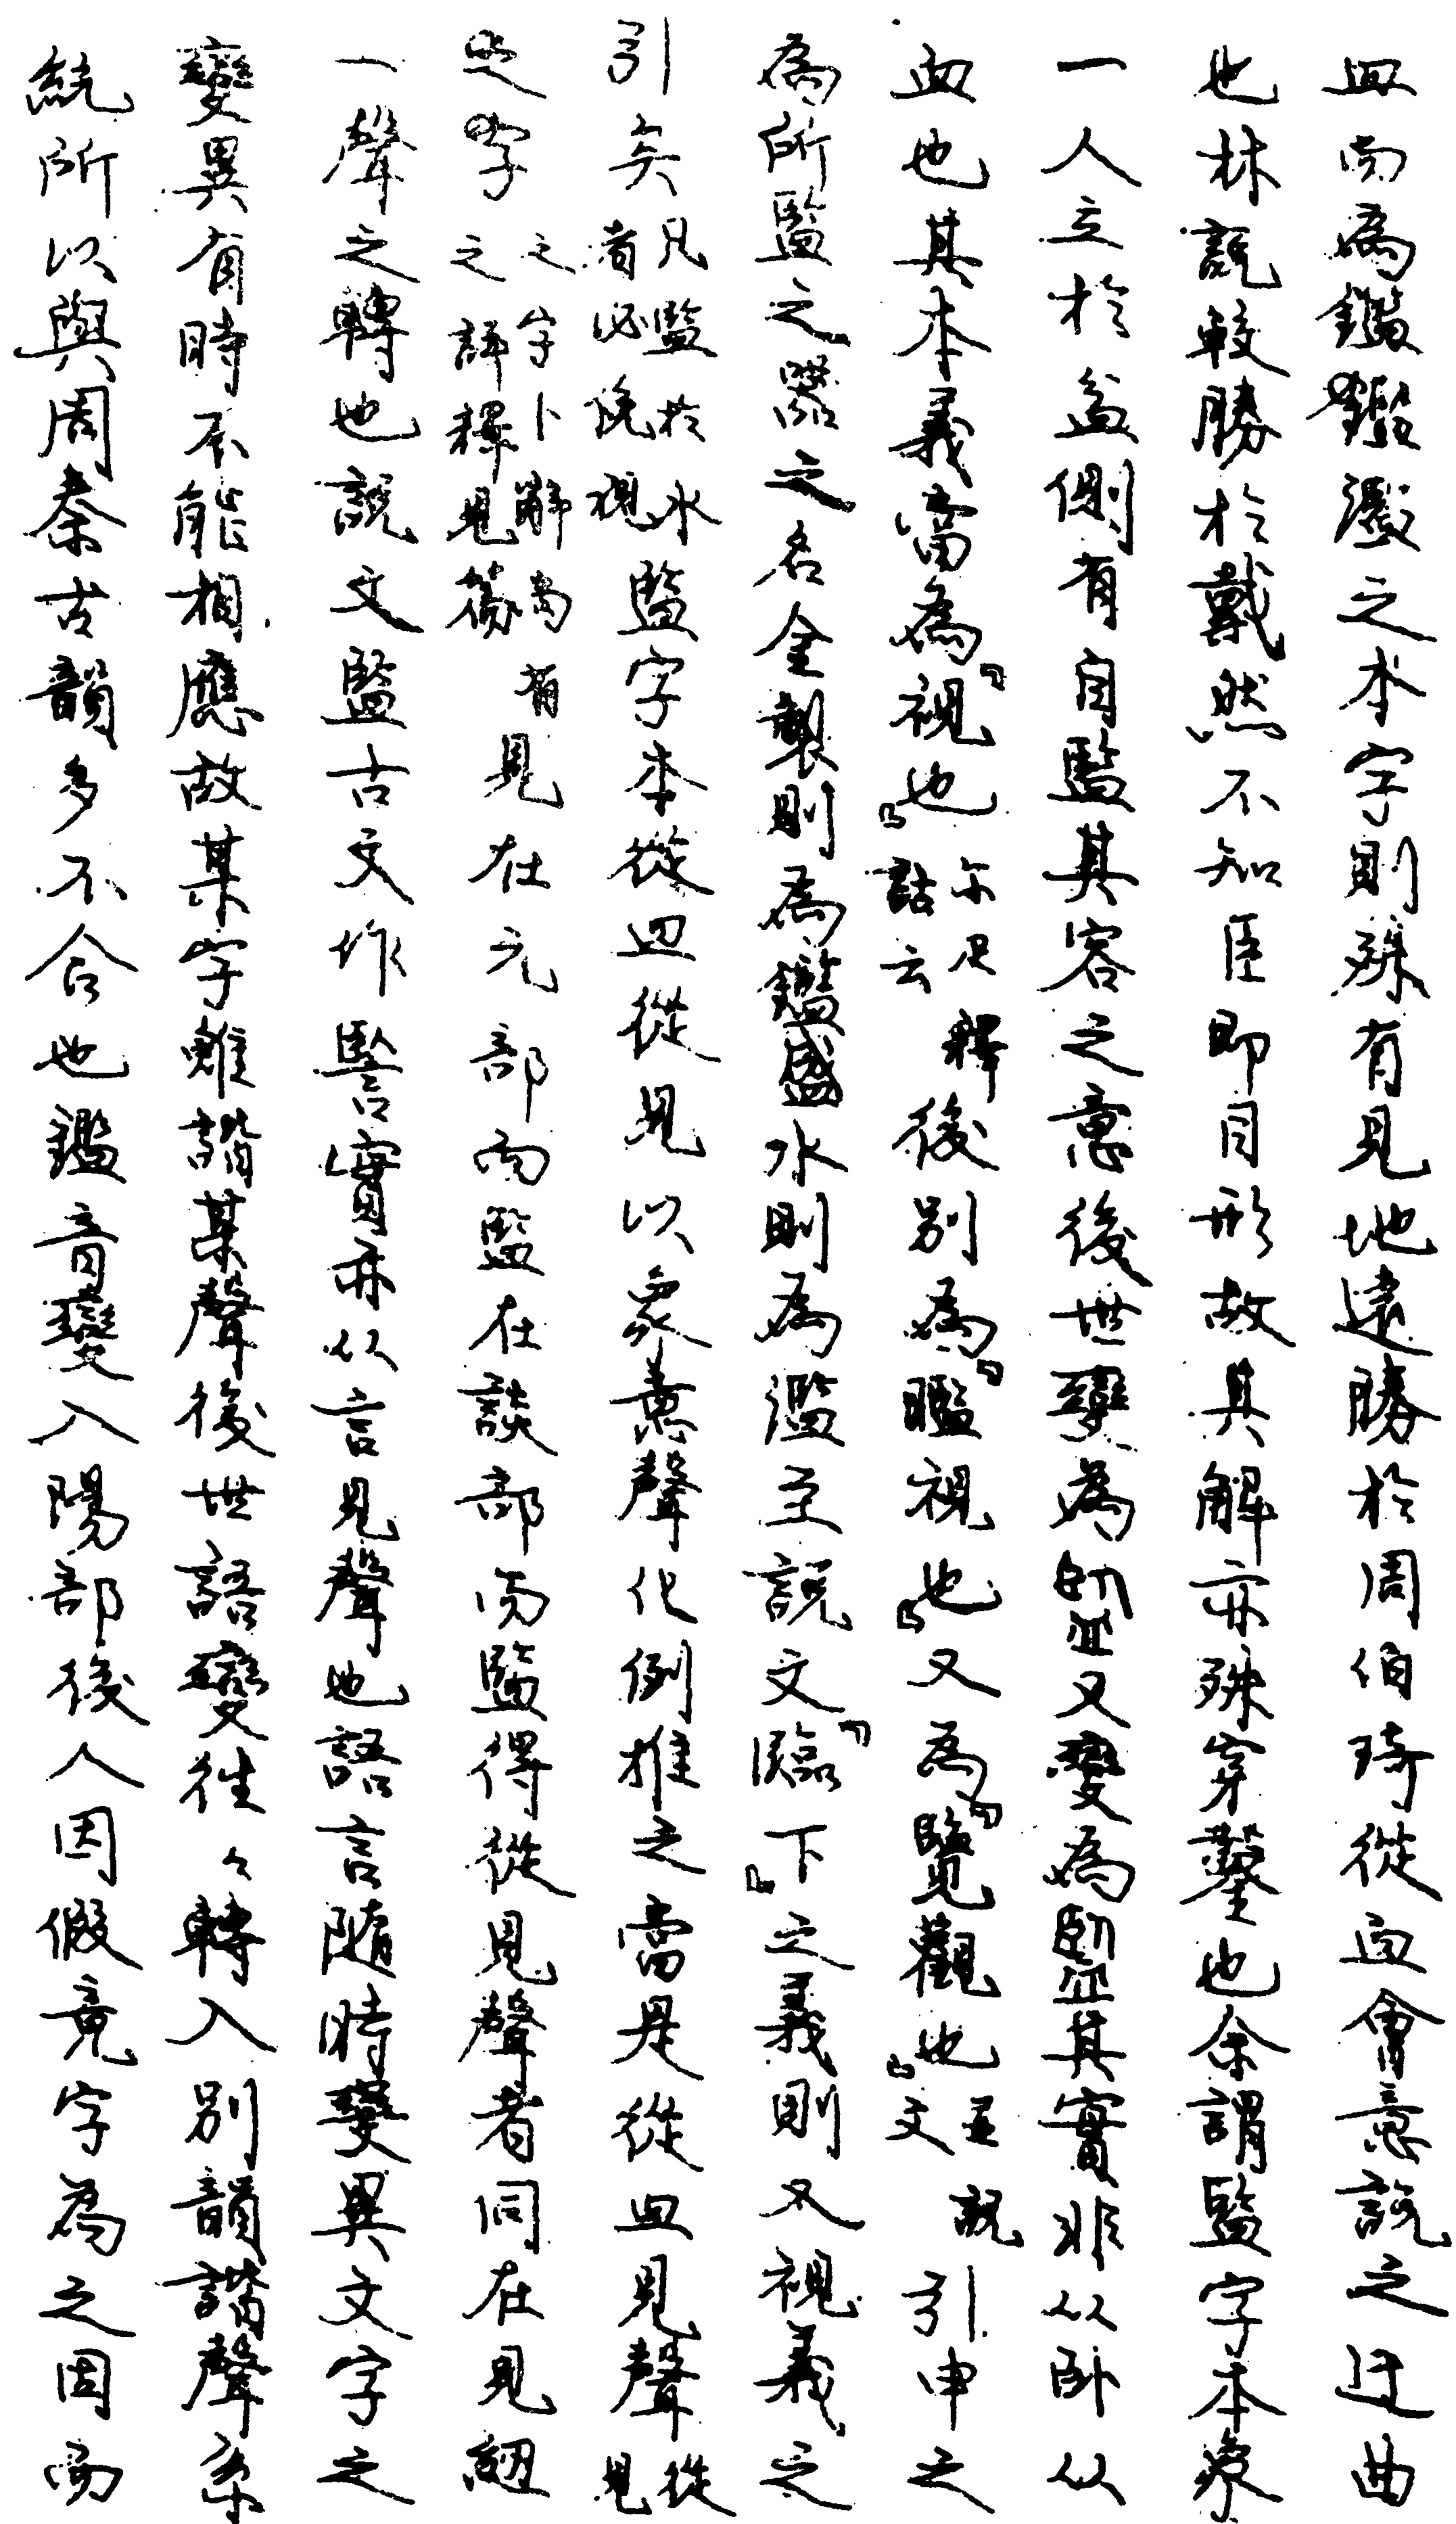 皿而為鑑鑑灋之本字則殊有見地遠勝於周伯琦從血會意說之迂曲
也林說較勝於戴然不知臣即目形故其解亦殊穿鑿也余謂監字本象
一人立於盆側有自監其容之意後世變為𥃲又變為監其實非从卧从
血也其本義當為「視也」尔疋釋詁云後別為「㬭視也」又為「覽觀也」並說文引申之
為所監之器之名金製則為鑑盛水則為濫至說文「臨下」之義則又視義之
引矣凡監於水者必俛視監字本從皿從見以象意聲化例推之當是從皿見聲從見
之字之字卜辭尚之詳釋見篇有見在元部而監在談部而監得從見聲者同在見紐
一聲之轉也說文監古文作𧫜實亦从言見聲也語言隨時變異文字之
變異有時不能相應故某字雖諧某聲後世語變往々轉入別韻諧聲系
統所以與周秦古韻多不合也鑑音變入陽部後人因假竟字為之因而